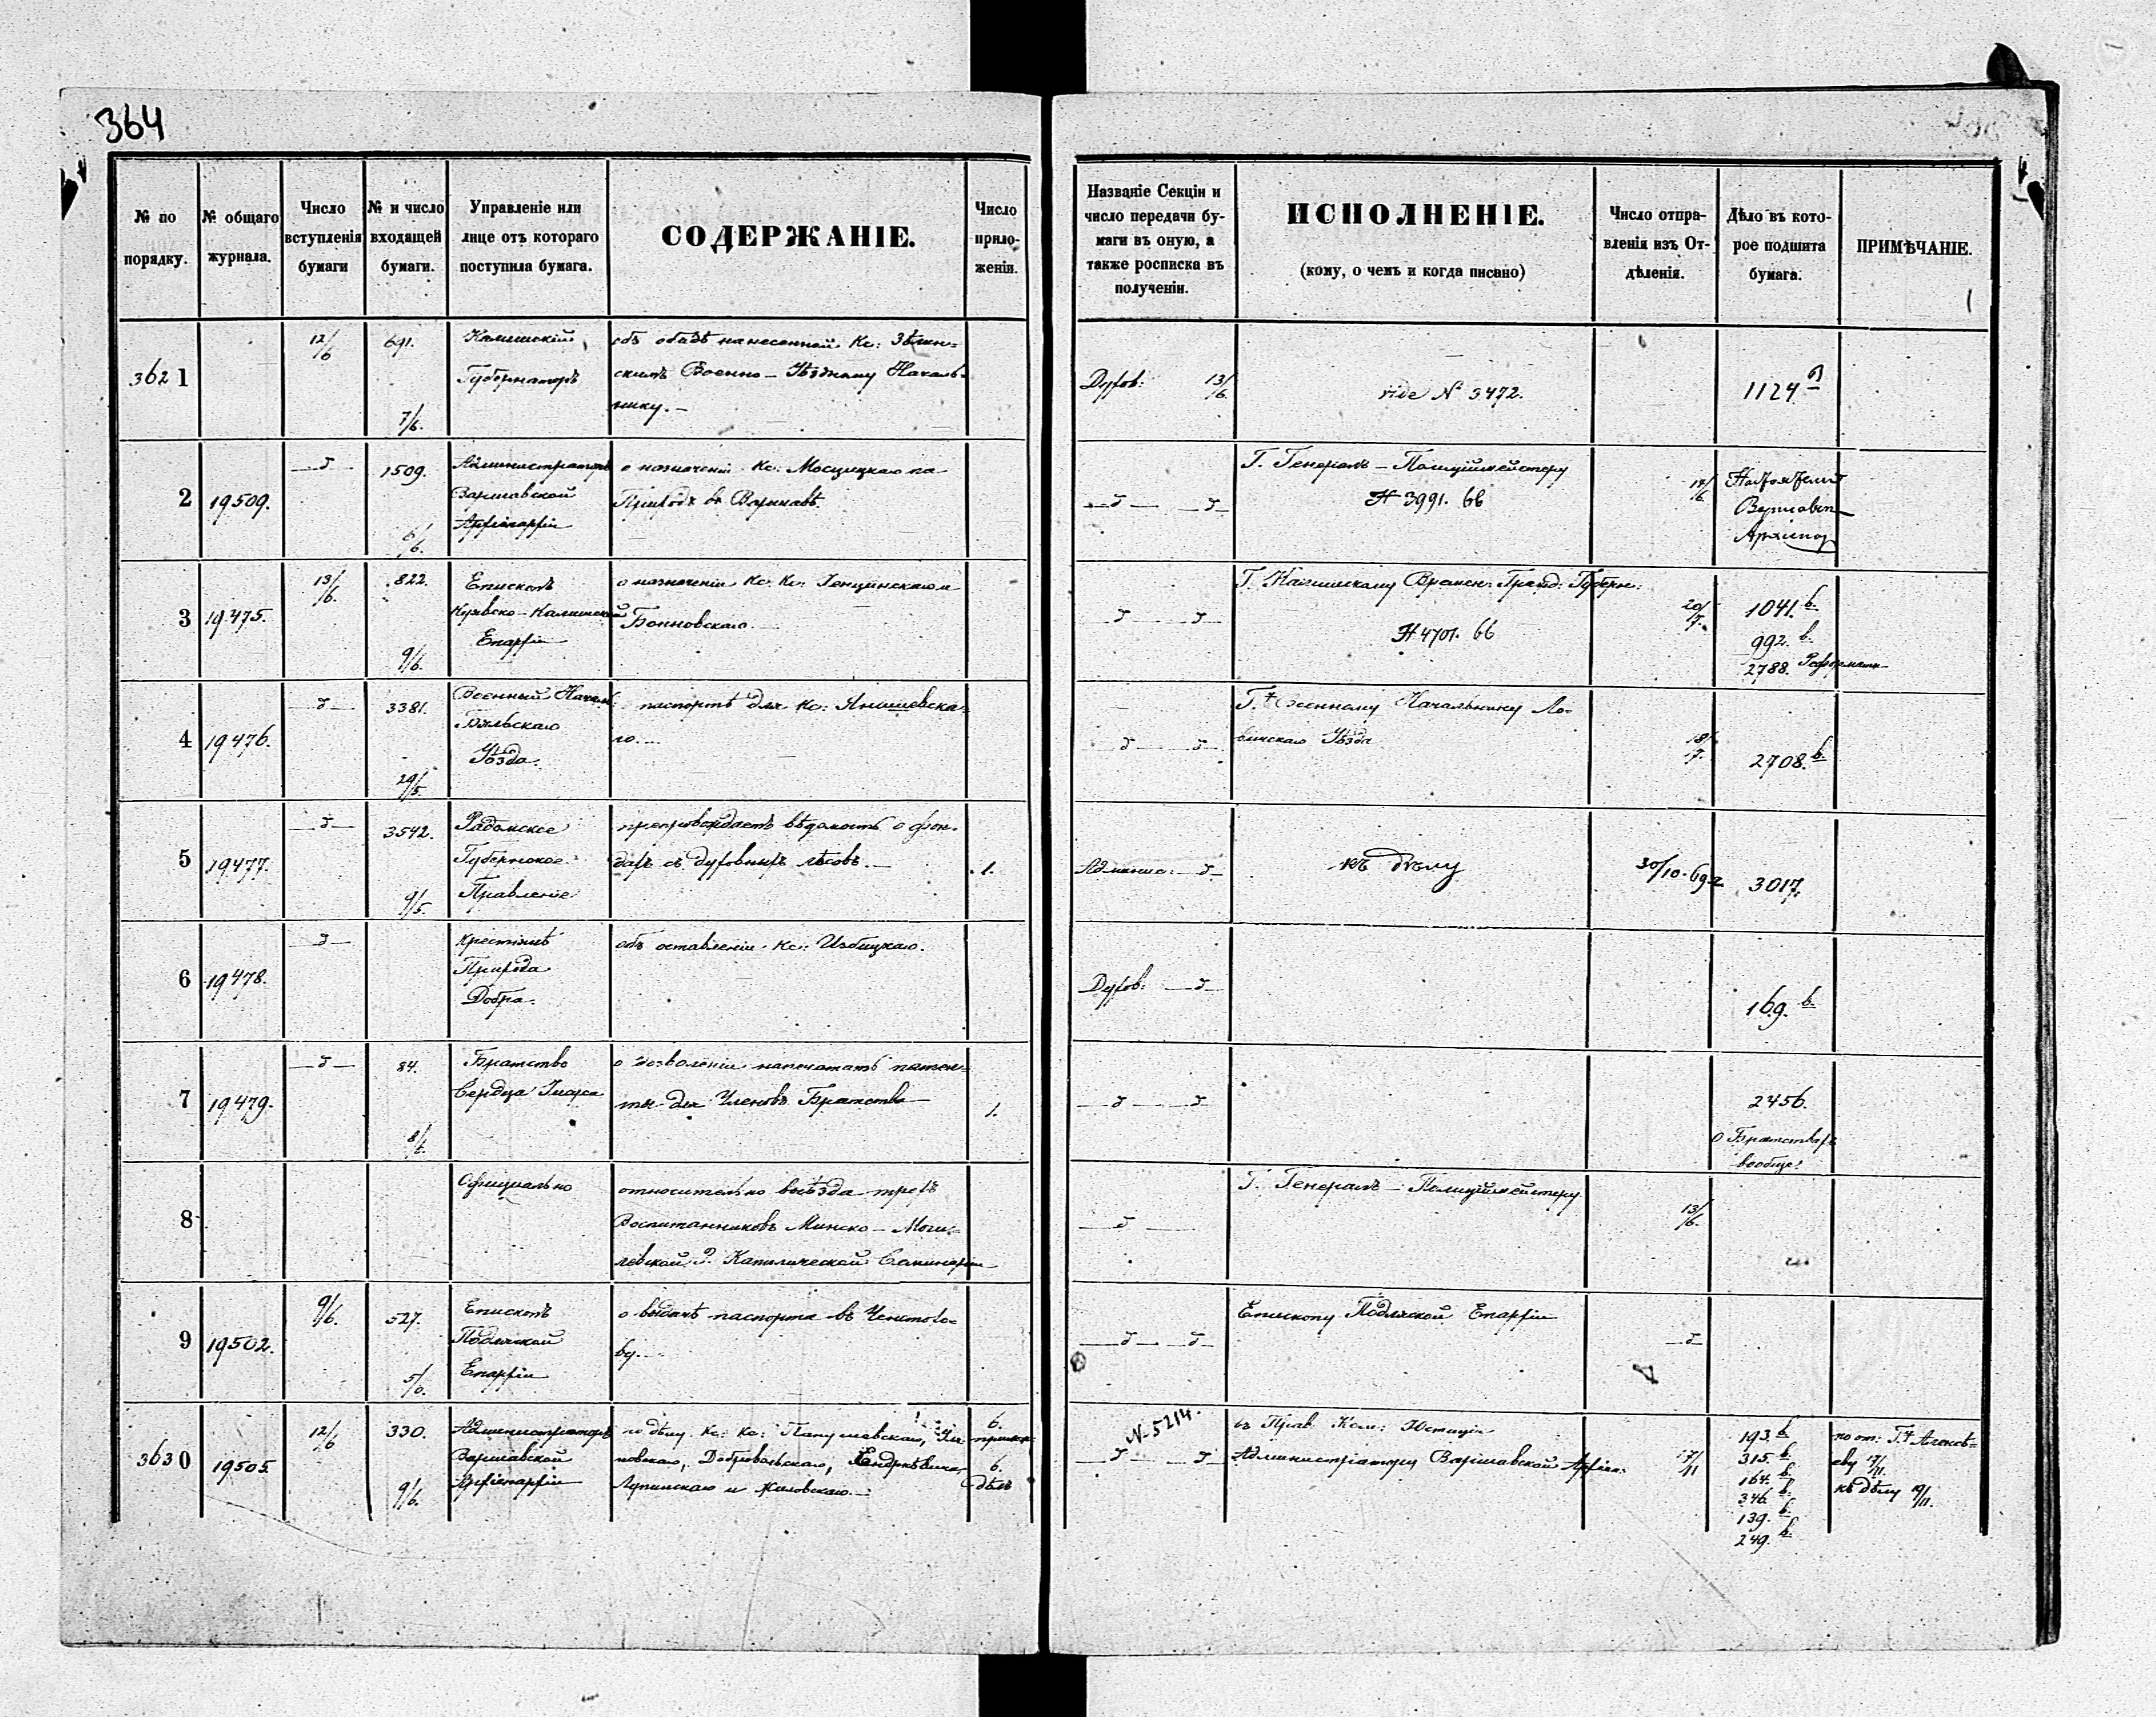 364
№ по порядку.
№ общаго журнала.
Число вступленія бумаги
№ и число входящей бумаги.
Управленіе или лице отъ котораго поступила бумага.
СОДЕРЖАНІЕ.
Число приложеніи.
Названіе Секціи и число передачи бумаги въ оную, а также росписка въ полученіи.
ИСПОЛНЕНІЕ.
(кому, о чемъ и когда писано)
Число отправленія изъ Отдѣленія.
Дѣло въ которое подшита бумага.
ПРИМѢЧАНІЕ.
3621
12/6
691.
7/6.
Калишскій
Губернаторъ
объ обидѣ нанесенной Кс:
скимъ Военно-Уѣздному Началь-
нику.
Духов: 13/6.
vide N 3472.
1124
2
19509.
1509.
6/6.
Администраторъ
Варшавской
Архіепархіи
о назначеніи Кс: на
Приходъ въ Варшавѣ.
Г. Генералъ-Полиціймейстеру
N 3991. 66
Варшавск
Архіепар
3
19475.
13/6.
822.
9/6.
Епископъ
Куявско-Калишской
Епархіи
о назначеніи Кс. Кс. и
Г. Калишскому Времен. Гражд: Губерн:
N 4701. 66
20/7.
1041. b.
992. b.
2788.
4
19476.
3381.
29/5.
Военный Начал:
Бѣльскаго
Уѣзда.
паспортъ для Кс: Янишевска-
го.
Г. Военному Начальнику
Уѣзда
18/7.
2708. b.
5
19477.
3542.
9/5.
Радомское
Губернское
Правленіе
препровождаетъ вѣдомость о
дах съ духовныхъ лѣсовъ.
1.
Админис:
къ дѣлу
30/10. 69
3017.
6
19478.
Прихода
Добра.
объ оставленіи Кс: Избицкаго.
Духов:
169. b.
7
19479.
84.
8/6.
Братство
Сердца Іисуса
о дозволеніи напечатать патен-
ты для Членовъ Братства
1.
2456.
о Братствахъ
вообще.
8
Официально
относительно выѣзда трехъ
Воспитанниковъ Минско-Моги-
левской Р. Католической Семинаріи
Г. Генералъ-Полиціймейстеру
13/6.
9
19502.
9/6.
527.
Епископъ
Подляской
Епархіи
о выдачѣ паспорта въ Ченстохо-
ву.
Епископу Подляской Епархіи
3630
19505.
12/6
330.
9/6.
Администраторъ
Варшавской
Архіепархіи
по дѣлу Кс: Кс:
Добровольскаго,
и
6.
6.
дѣлъ
N. 5214.
въ Прав. Ком: Юстиціи
Администратору Варшавской Архіеп:
17/11
193. b.
315. b.
164. b.
346. b.
139. b.
249. b.
къ дѣлу 19/11.